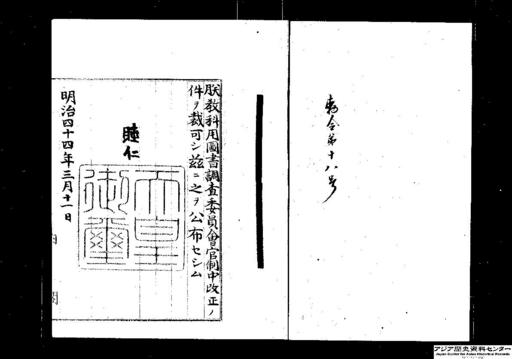 勅令第十八号
朕教科用圖書調査委員會官制中改正ノ
件ヲ裁可シ茲ニ之ヲ公布セシム
睦仁
天皇
御璽
明治四十四年三月十一日
内閣
アジア歴史資料センター
Japan Center for Asian Historical Records